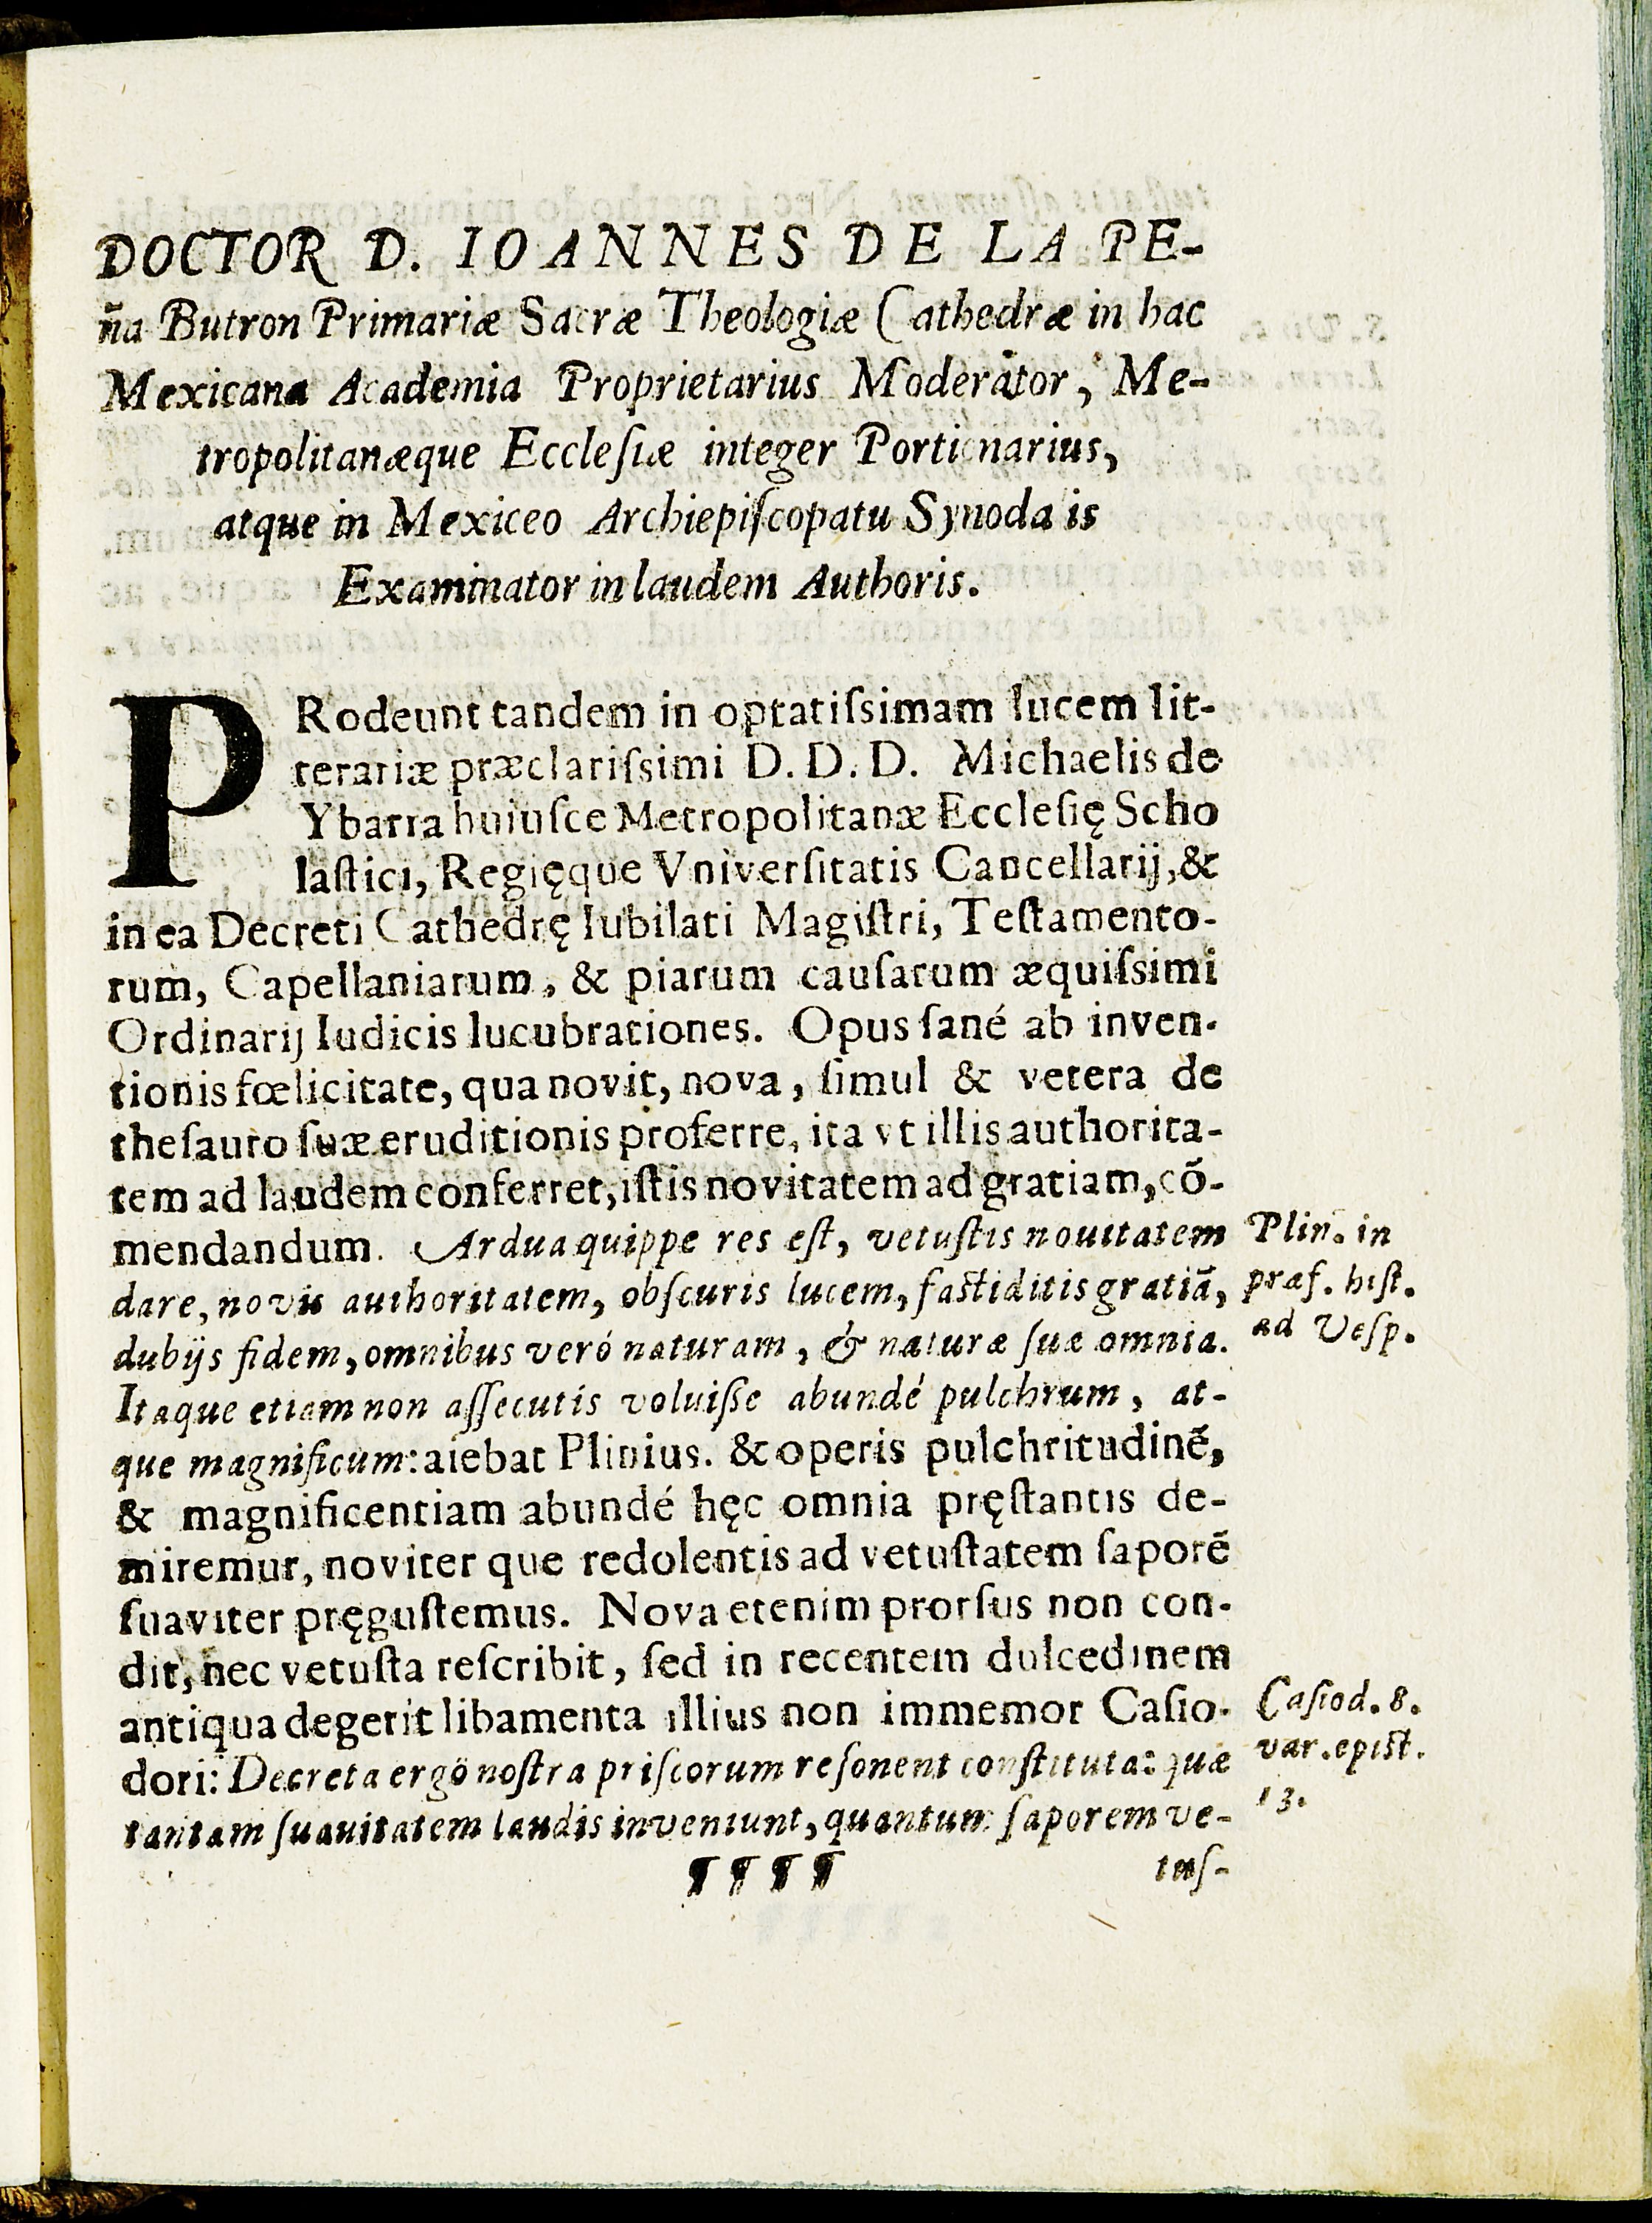 DOCTOR D. IOANNES DE LA PE-
ña Butron Primariæ Sacræ Theologiæ Cathedræ in hac
Mexicana Academia Proprietarius Moderator, Me-
tropolitanæque Eccleſiæ integer Portionarius,
atque in Mexiceo Archiepiſcopatu Synodalis
Examinator in laudem Authoris.
PRodeunt tandem in optatiſsimam lucem lit-
terariæ præclariſsimi D. D. D. Michaelis de
Ybarra huiuſce Metropolitanæ Eccleſię Scho
laſtici, Regięque Vniverſitatis Cancellarij, &
in ea Decreti Cathedrę Iubilati Magiſtri, Teſtamento-
rum, Capellaniarum, & piarum cauſarum æquiſsimi
Ordinarij Iudicis lucubrationes. Opus ſané ab inven-
tionis fœlicitate, qua novit, nova, ſimul & vetera de
theſauro ſuæ eruditionis proferre, ita vt illis authorita-
tem ad laudem conferret, iſtis novitatem ad gratiam, cõ-
mendandum. Ardua quippe res eſt, vetuſtis nouitatem
dare, novis authoritatem, obſcuris lucem, faſtiditis gratiã,
dubijs fidem, omnibus veró naturam, & naturæ ſuæ omnia.
Itaque etiam non aſſecutis voluiſse abundé pulchrum, at-
que magnificum: aiebat Plinius. & operis pulchritudinẽ,
& magnificentiam abundé hęc omnia pręſtantis de-
miremur, noviter que redolentis ad vetuſtatem ſaporẽ
ſuaviter pręguſtemus. Nova etenim prorſus non con-
dit, nec vetuſta reſcribit, ſed in recentem dulcedinem
antiqua degerit libamenta illius non immemor Caſio-
dori: Decreta ergò noſtra priſcorum reſonent conſtituta: quæ
tantam ſuavitatem laudis inveniunt, quantum ſaporem ve-
¶¶¶¶ tuſ-
Plin. in
præf. hiſt.
ad Veſp.
Caſiod. 8.
var. epiſt.
13.